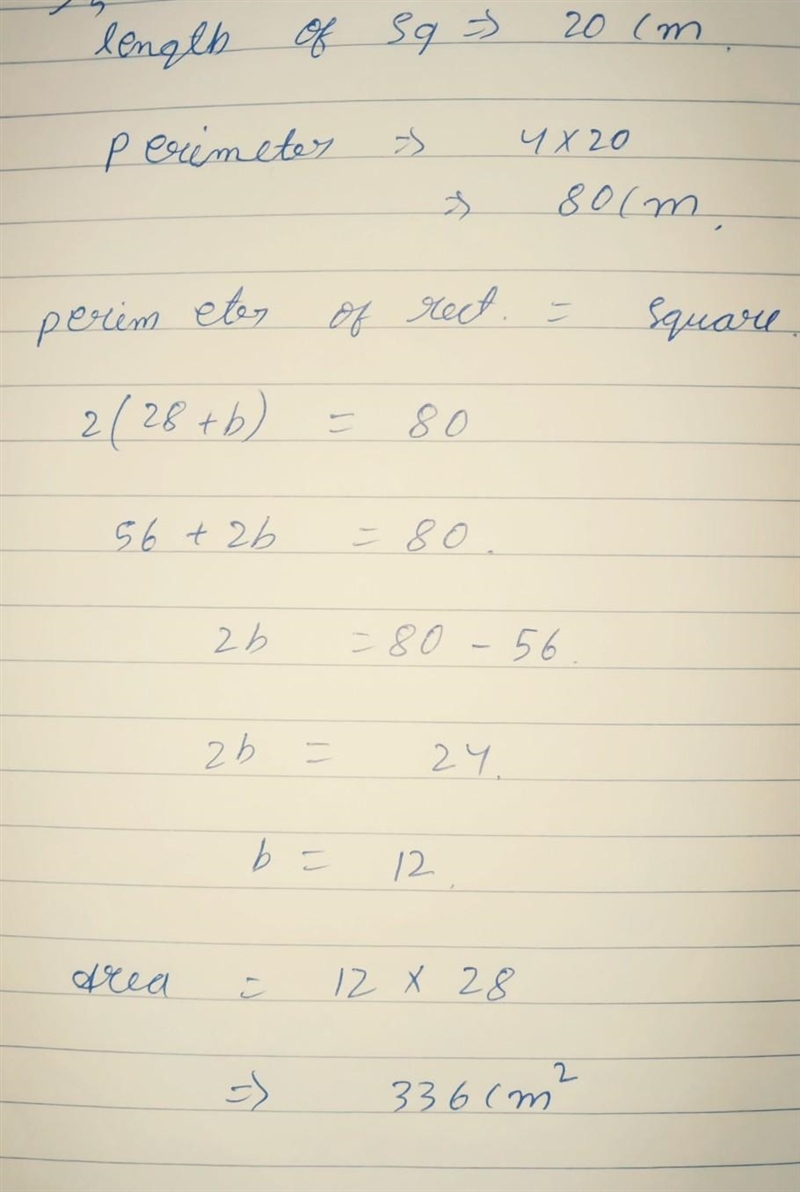 length of sq ⇒ 20 cm.
perimeter ⇒ 4 x 20
⇒ 80 cm.
perimeter of rect. = square.
2(28 + b) = 80
56 + 2b = 80.
2b = 80 - 56.
2b = 24.
b = 12.
area = 12 x 28
⇒ 336 cm²